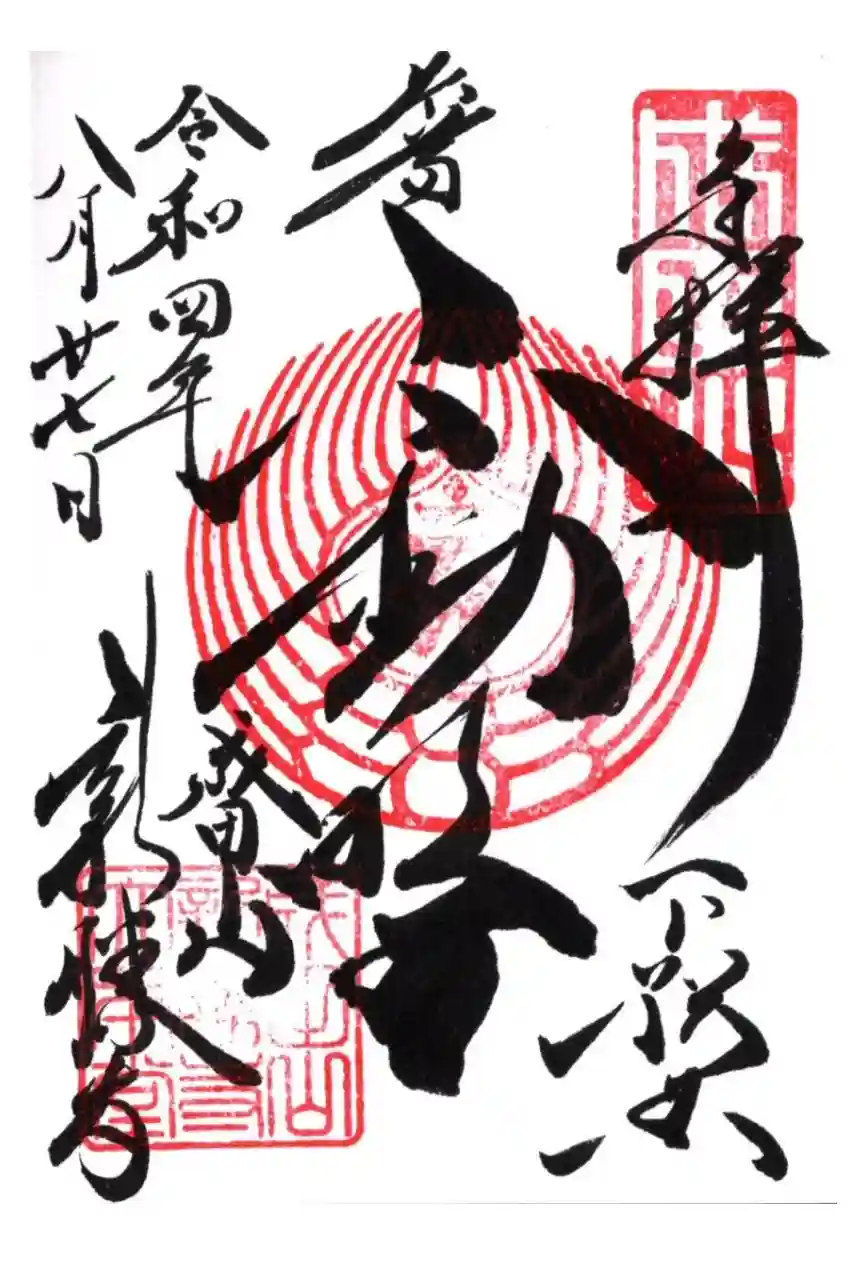 奉拝
下總
不動尊
令和四年
八月廿七日
成田山
新勝寺